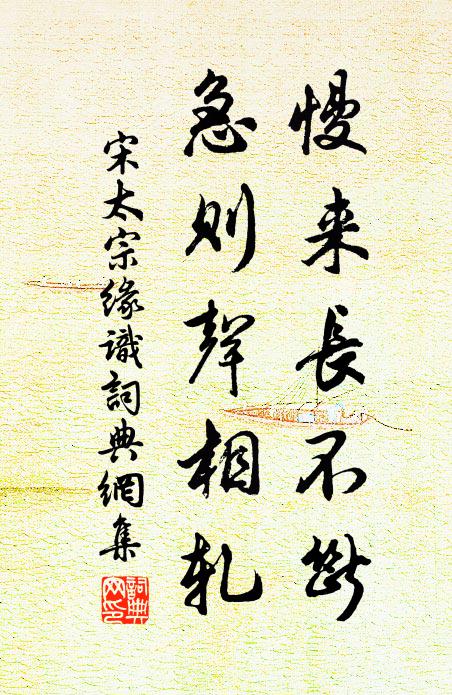 慢来長不斷
急則聲相軋
宋太宗緣識詞典網集
詞典網印